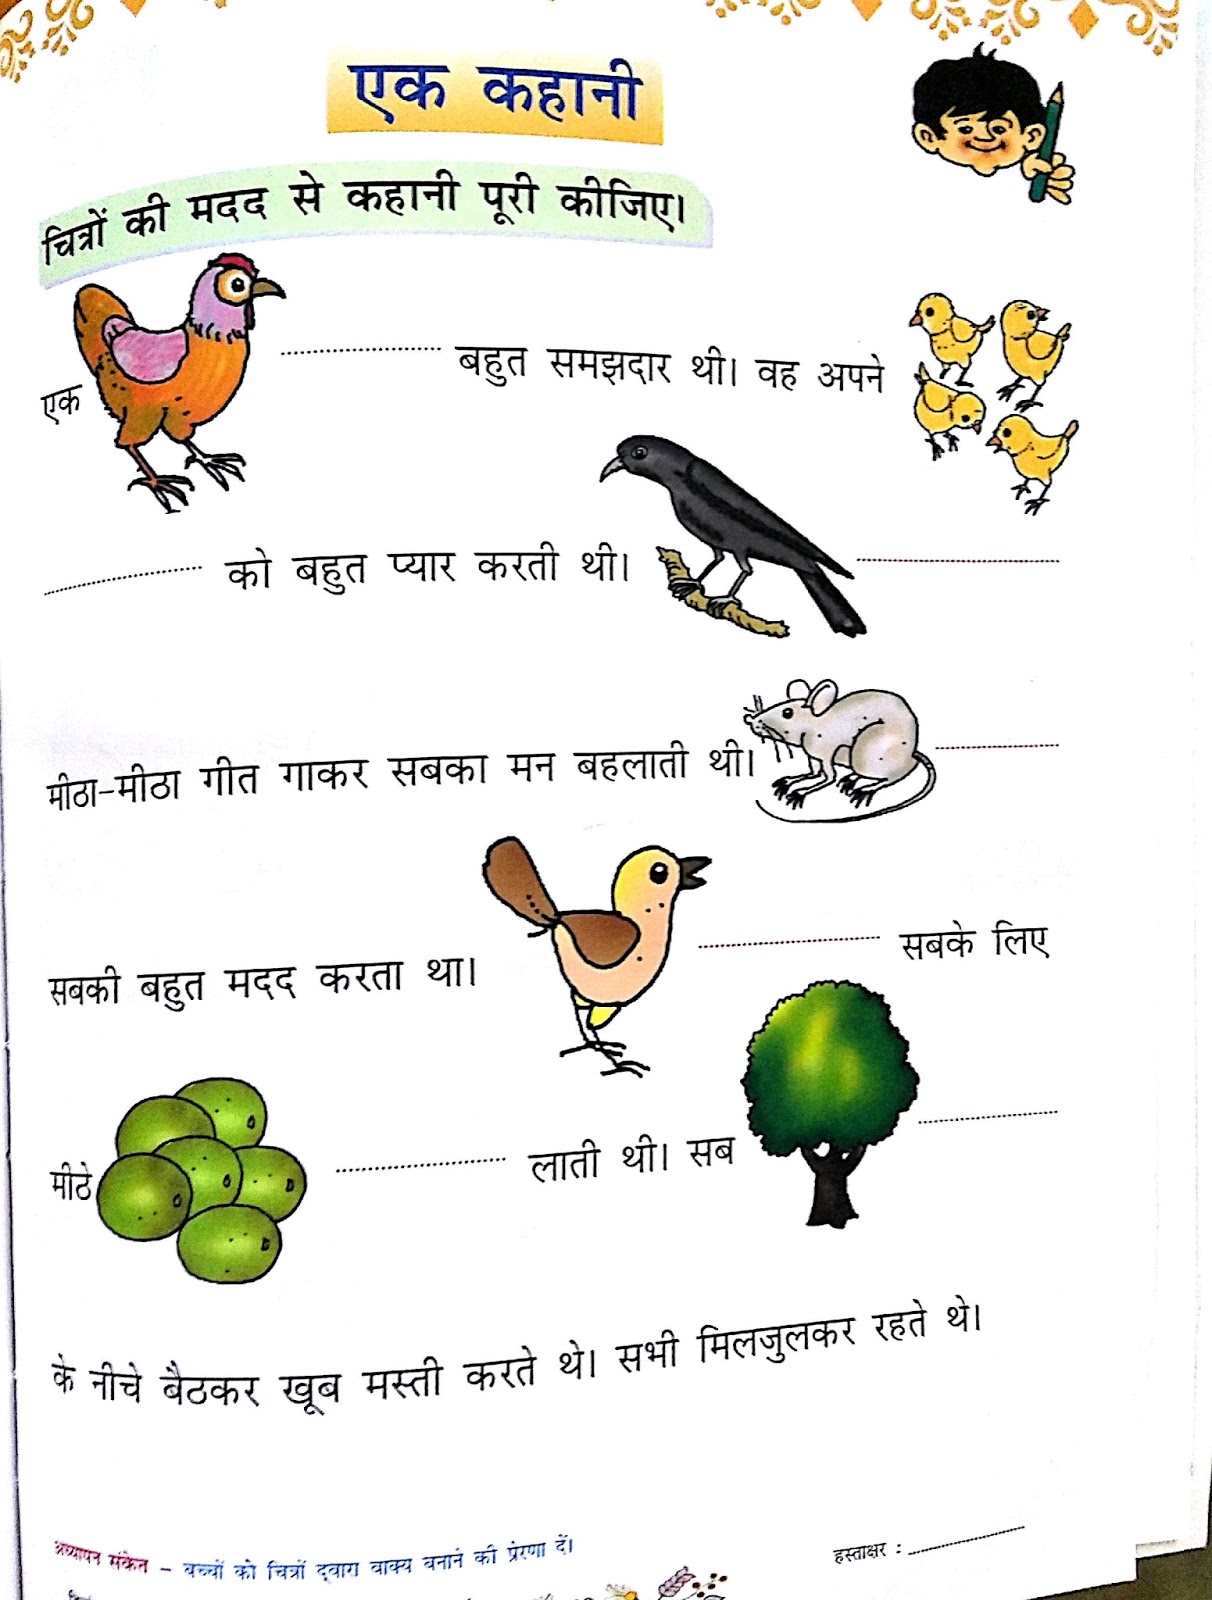 एक कहानी
चित्रों की मदद से कहानी पूरी कीजिए।
एक ............ बहुत समझदार थी। वह अपने
............ को बहुत प्यार करती थी। ............
मीठा-मीठा गीत गाकर सबका मन बहलाती थी। ............
सबकी बहुत मदद करता था। ............ सबके लिए
मीठे ............ लाती थी। सब ............
के नीचे बैठकर खूब मस्ती करते थे। सभी मिलजुलकर रहते थे।
अध्यापन संकेत – बच्चों को चित्रों द्वारा वाक्य बनाने की प्रेरणा दें।
हस्ताक्षर : ............